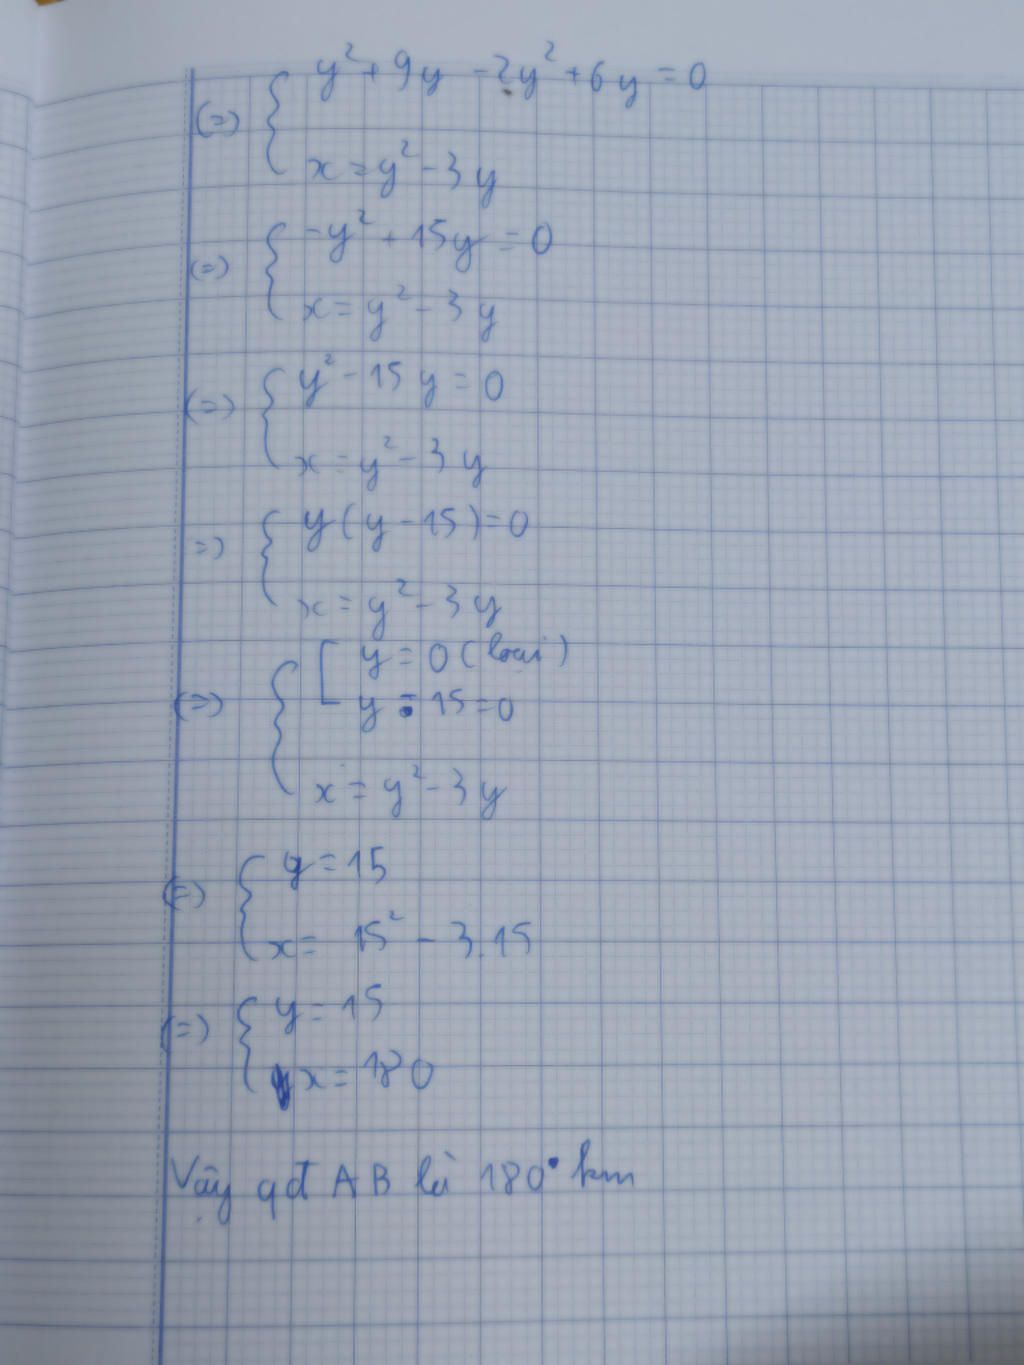 y² + 9y - 2y² + 6y = 0
(=) {
x = y² - 3y
(=) { -y² + 15y = 0
x = y² - 3y
(=) { y² - 15y = 0
x = y² - 3y
=) { y(y - 15) = 0
x = y² - 3y
[ y = 0 (loại)
(=) { y - 15 = 0
x = y² - 3y
(=) { y = 15
x = 15² - 3.15
(=) { y = 15
x = 180
Vậy qđ AB là 180 km